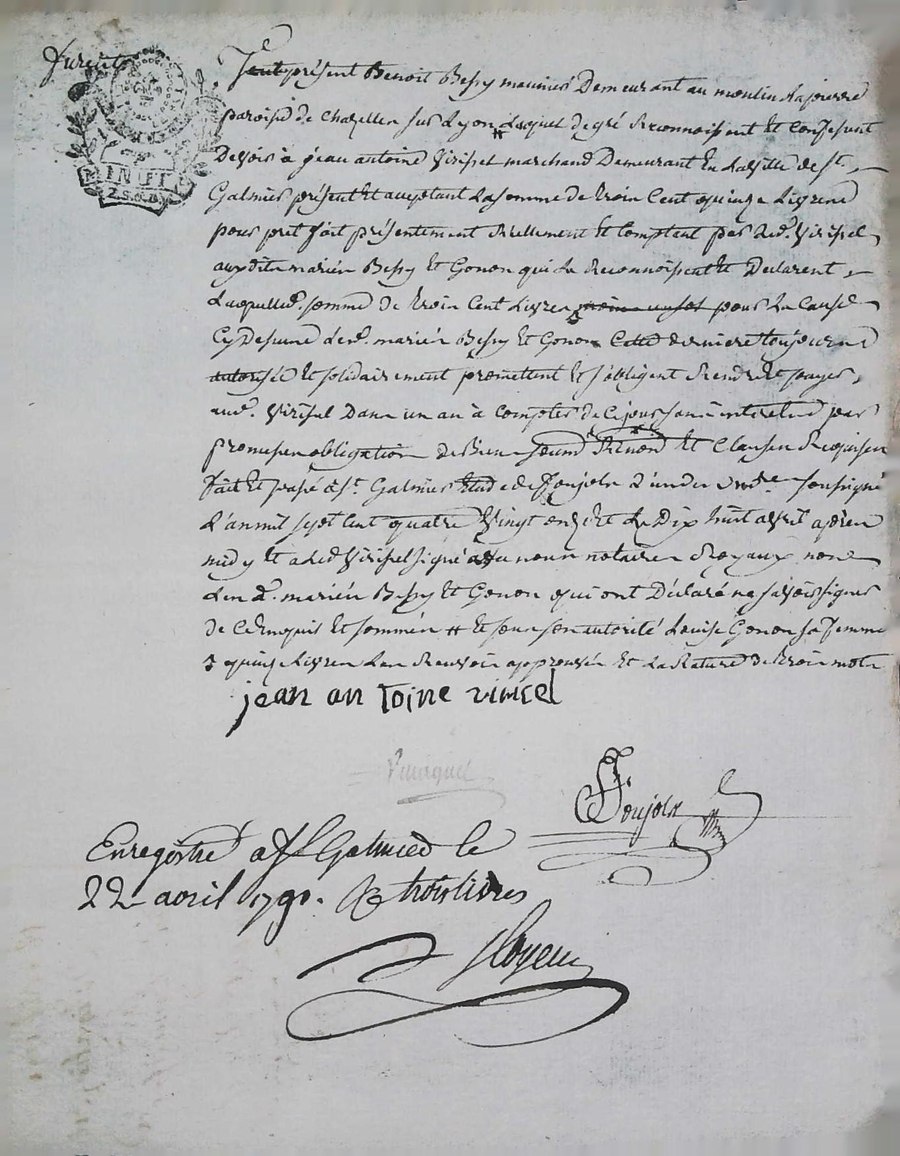 Furent
MIN. FI
2 S. 8 D
présent Benoit Bessy meunier Demeurant au moulin
paroisse de Chazelles sur Lyon # Lesquels de gré Reconnoissent Et Confessent
Devoir à jean antoine Virissel marchand Demeurant En La Ville de St.
Galmier présent Et acceptant La somme de trois Cent quinze Livres
pour pret fait présentement Réellement Et Comptant par Led. Virissel
auxdits mariés Bessy Et Gonon qui La Reconnoissent Et Declarent
Laquelle d. somme de trois Cent Livres pour La Cause
Cy Dessus Les d. mariés Bessy Et Gonon Cette derniere toujours
autorisée Et solidairement promettent Et s'obligent Rendre Et payer
aud. Virissel Dans un an à Compter de Ce jour sans interets par
promesses obligation de Biens soums Renond Et Clauses Requises
fait Et passé à St. Galmier Etude de Foujols L'un des soussigné
L'an mil sept Cent quatre Vingt dix Et Le Dix huit avril après
midy Et a Led Virissel signé avec nous notaires Royaux non
Les d. mariés Bessy Et Gonon qui ont Déclaré ne savoir signer
de Ce Enquis Et sommés # Et sous son autorité Louise Gonon sa femme
3 quinze Livres Les Renvois approuvés Et La Rature de trois mots
jean an toine viricel
Foujols
Enregistré a St Galmier le
22 avril 1790. R trois livres